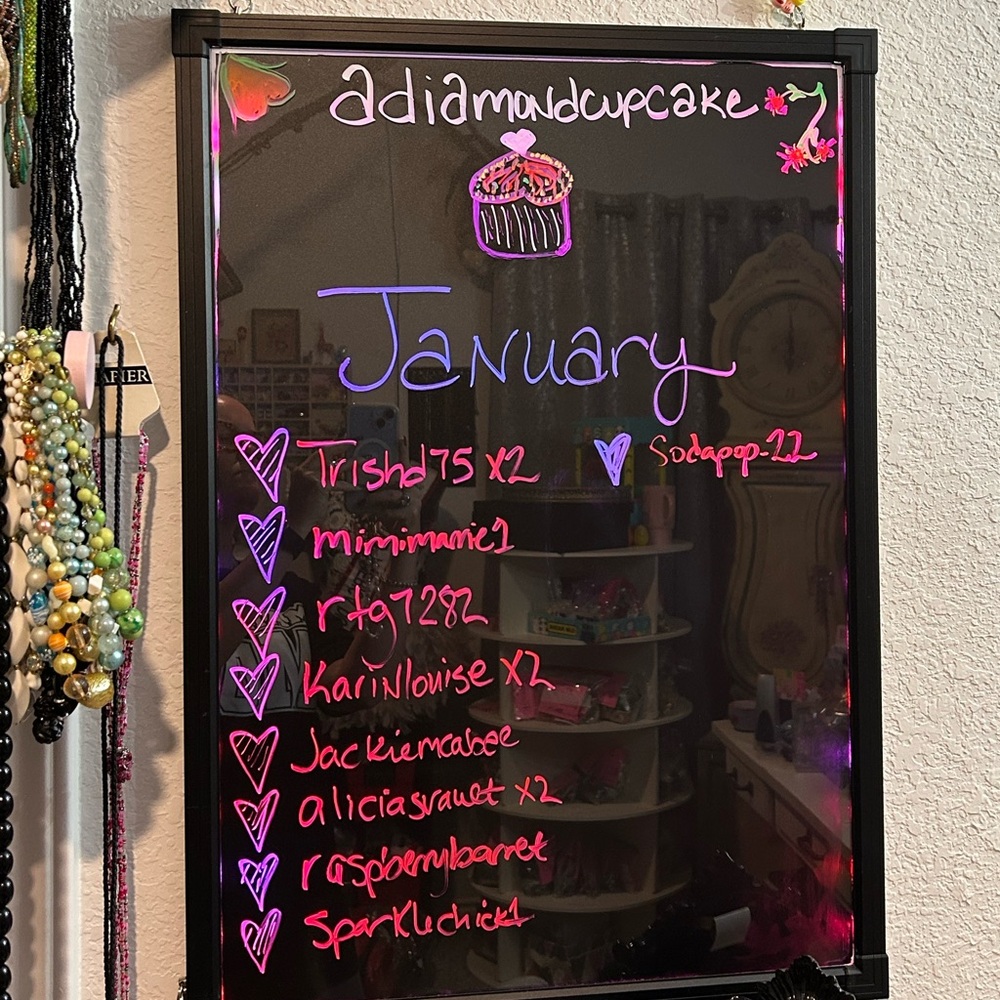 adiamondcupcake
January
Trishd75 x2
mimimarie1
rtg7282
Karinlouise x2
Jackiemcabee
x2
raspberrybarret
Sparklechick1
Sodapop-22